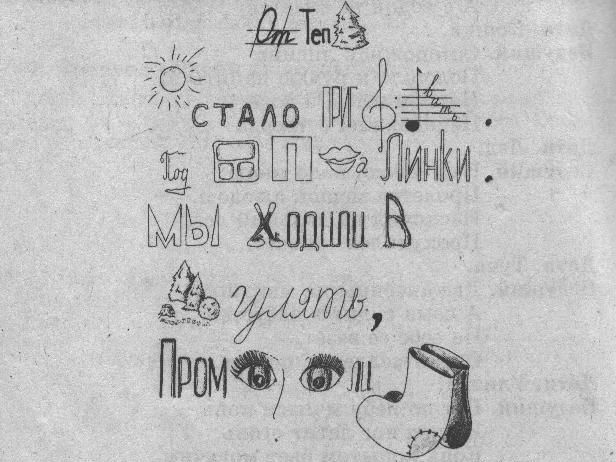 От Теп
стало ПРИГ вать .
Под П а Линки .
МЫ Ходили В
гулять,
Пром ли